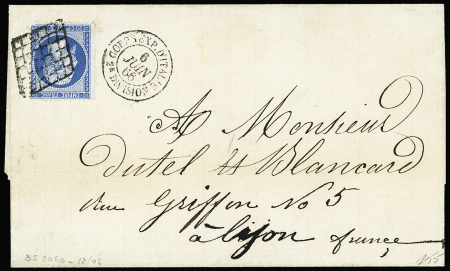 CORPS EXP. D'ITALIE
6
JUIN
2e DIVISION
A Monsieur
Dutel & Blancard
rue Griffon No 5
à Lyon france